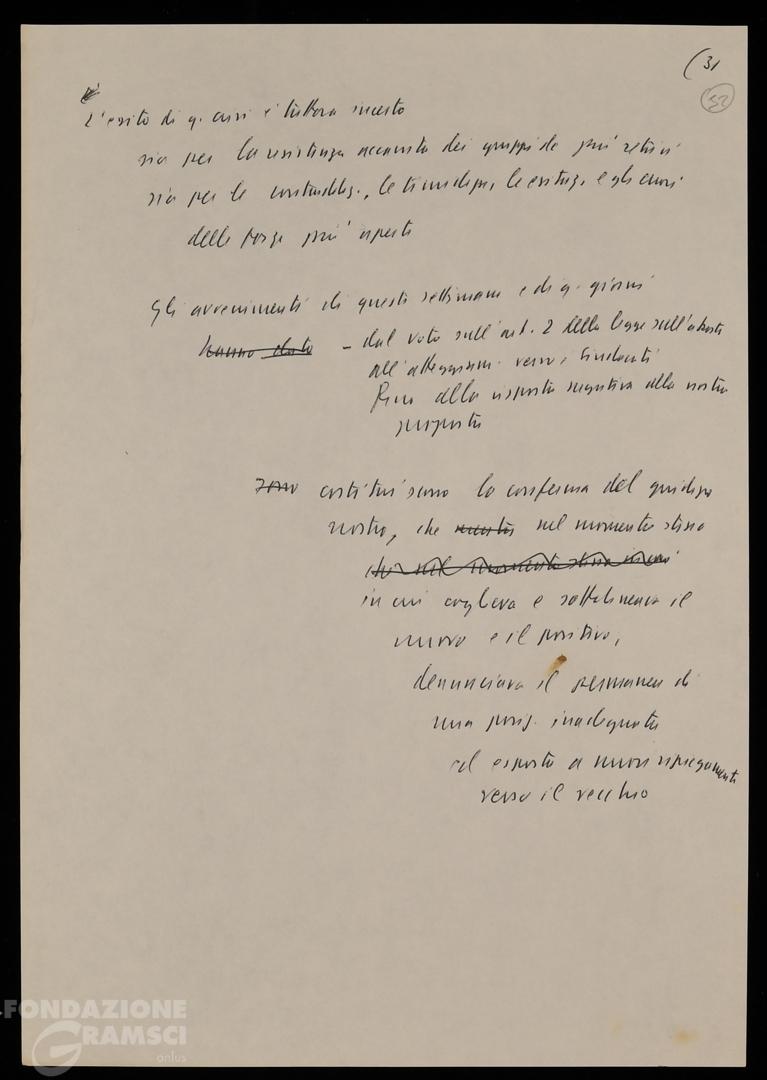 (31
32
L'esito di q. crisi è tuttora incerto
sia per la resistenza accanita dei gruppi dc più retrivi
sia per le contraddiz., le timidezze, le esitaz. e gli errori
delle forze più aperte
Gli avvenimenti di queste settimane e di q. giorni
hanno dato - dal voto sull'art. 2 della legge sull'aborto
all'atteggiam. verso i sindacati
fino alla risposta negativa alla nostra
proposta
sono costituiscono la conferma del giudizio
nostro, che mentre nel momento stesso
che nel momento stesso in cui
in cui coglieva e sottolineava il
nuovo e il positivo,
denunciava il permanere di
una posiz. inadeguata
ed esposta a nuovi ripiegamenti
verso il vecchio
FONDAZIONE
GRAMSCI
onlus